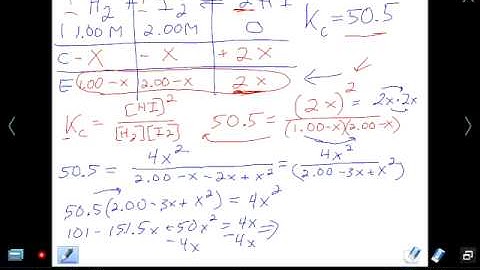 H₂ + I₂ ⇌ 2HI
I 1.00M 2.00M 0 Kc = 50.5
C -X -X +2X
E 1.00-x 2.00-x 2x
Kc = [HI]² / [H₂][I₂] 50.5 = (2x)² / (1.00-x)(2.00-x) = 2x·2x
50.5 = 4x² / 2.00-x-2x+x² = 4x² / (2.00-3x+x²)
50.5(2.00-3x+x²) = 4x²
101-151.5x+50x² = 4x ⇒
-4x -4x